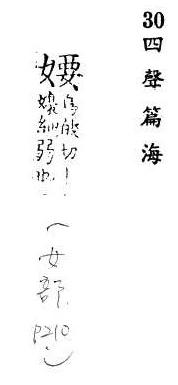 30四聲篇海
婹烏皎切｜
嬝細弱也
(女部.P210.)